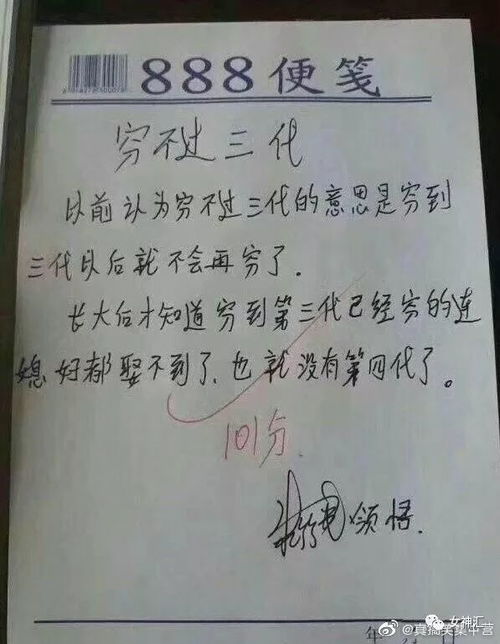 888便笺
穷不过三代
以前认为穷不过三代的意思是穷到
三代以后就不会再穷了.
长大后才知道穷到第三代已经穷的连
媳好都娶不到了,也就没有第四代了。
101分
领悟.
年
女神汇
@真搞笑集中营